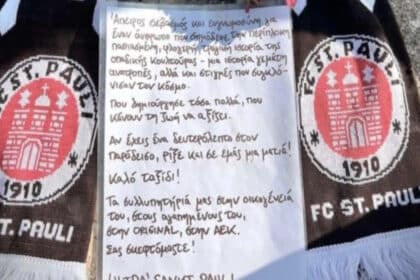 Άπειρος σεβασμός και ευγνωμοσύνη για
έναν άνθρωπο που σημάδεψε την περίπλοκη
παθιασμένη, φλογερή, τραγική ιστορία της
οπαδικής κουλτούρας - μια ιστορία γεμάτη
ανατροπές, αλλά και στιγμές που συγκλό-
νισαν τον κόσμο.
Που δημιούργησε τόσα πολλά, που
κάνουν τη ζωή να αξίζει.
Αν έχεις ένα δευτερόλεπτο στον
παράδεισο, ρίξε και σε εμάς μια ματιά!
Καλό ταξίδι!
Τα συλλυπητήριά μας στην οικογένειά
του, στους αγαπημένους του,
στην ORIGINAL, στην ΑΕΚ.
Σας σκεφτόμαστε!
ULTRA' SANKT PAULI
FC ST. PAULI
1910
FC ST. PAULI
1910
ST. PAULI
FC ST. PAULI